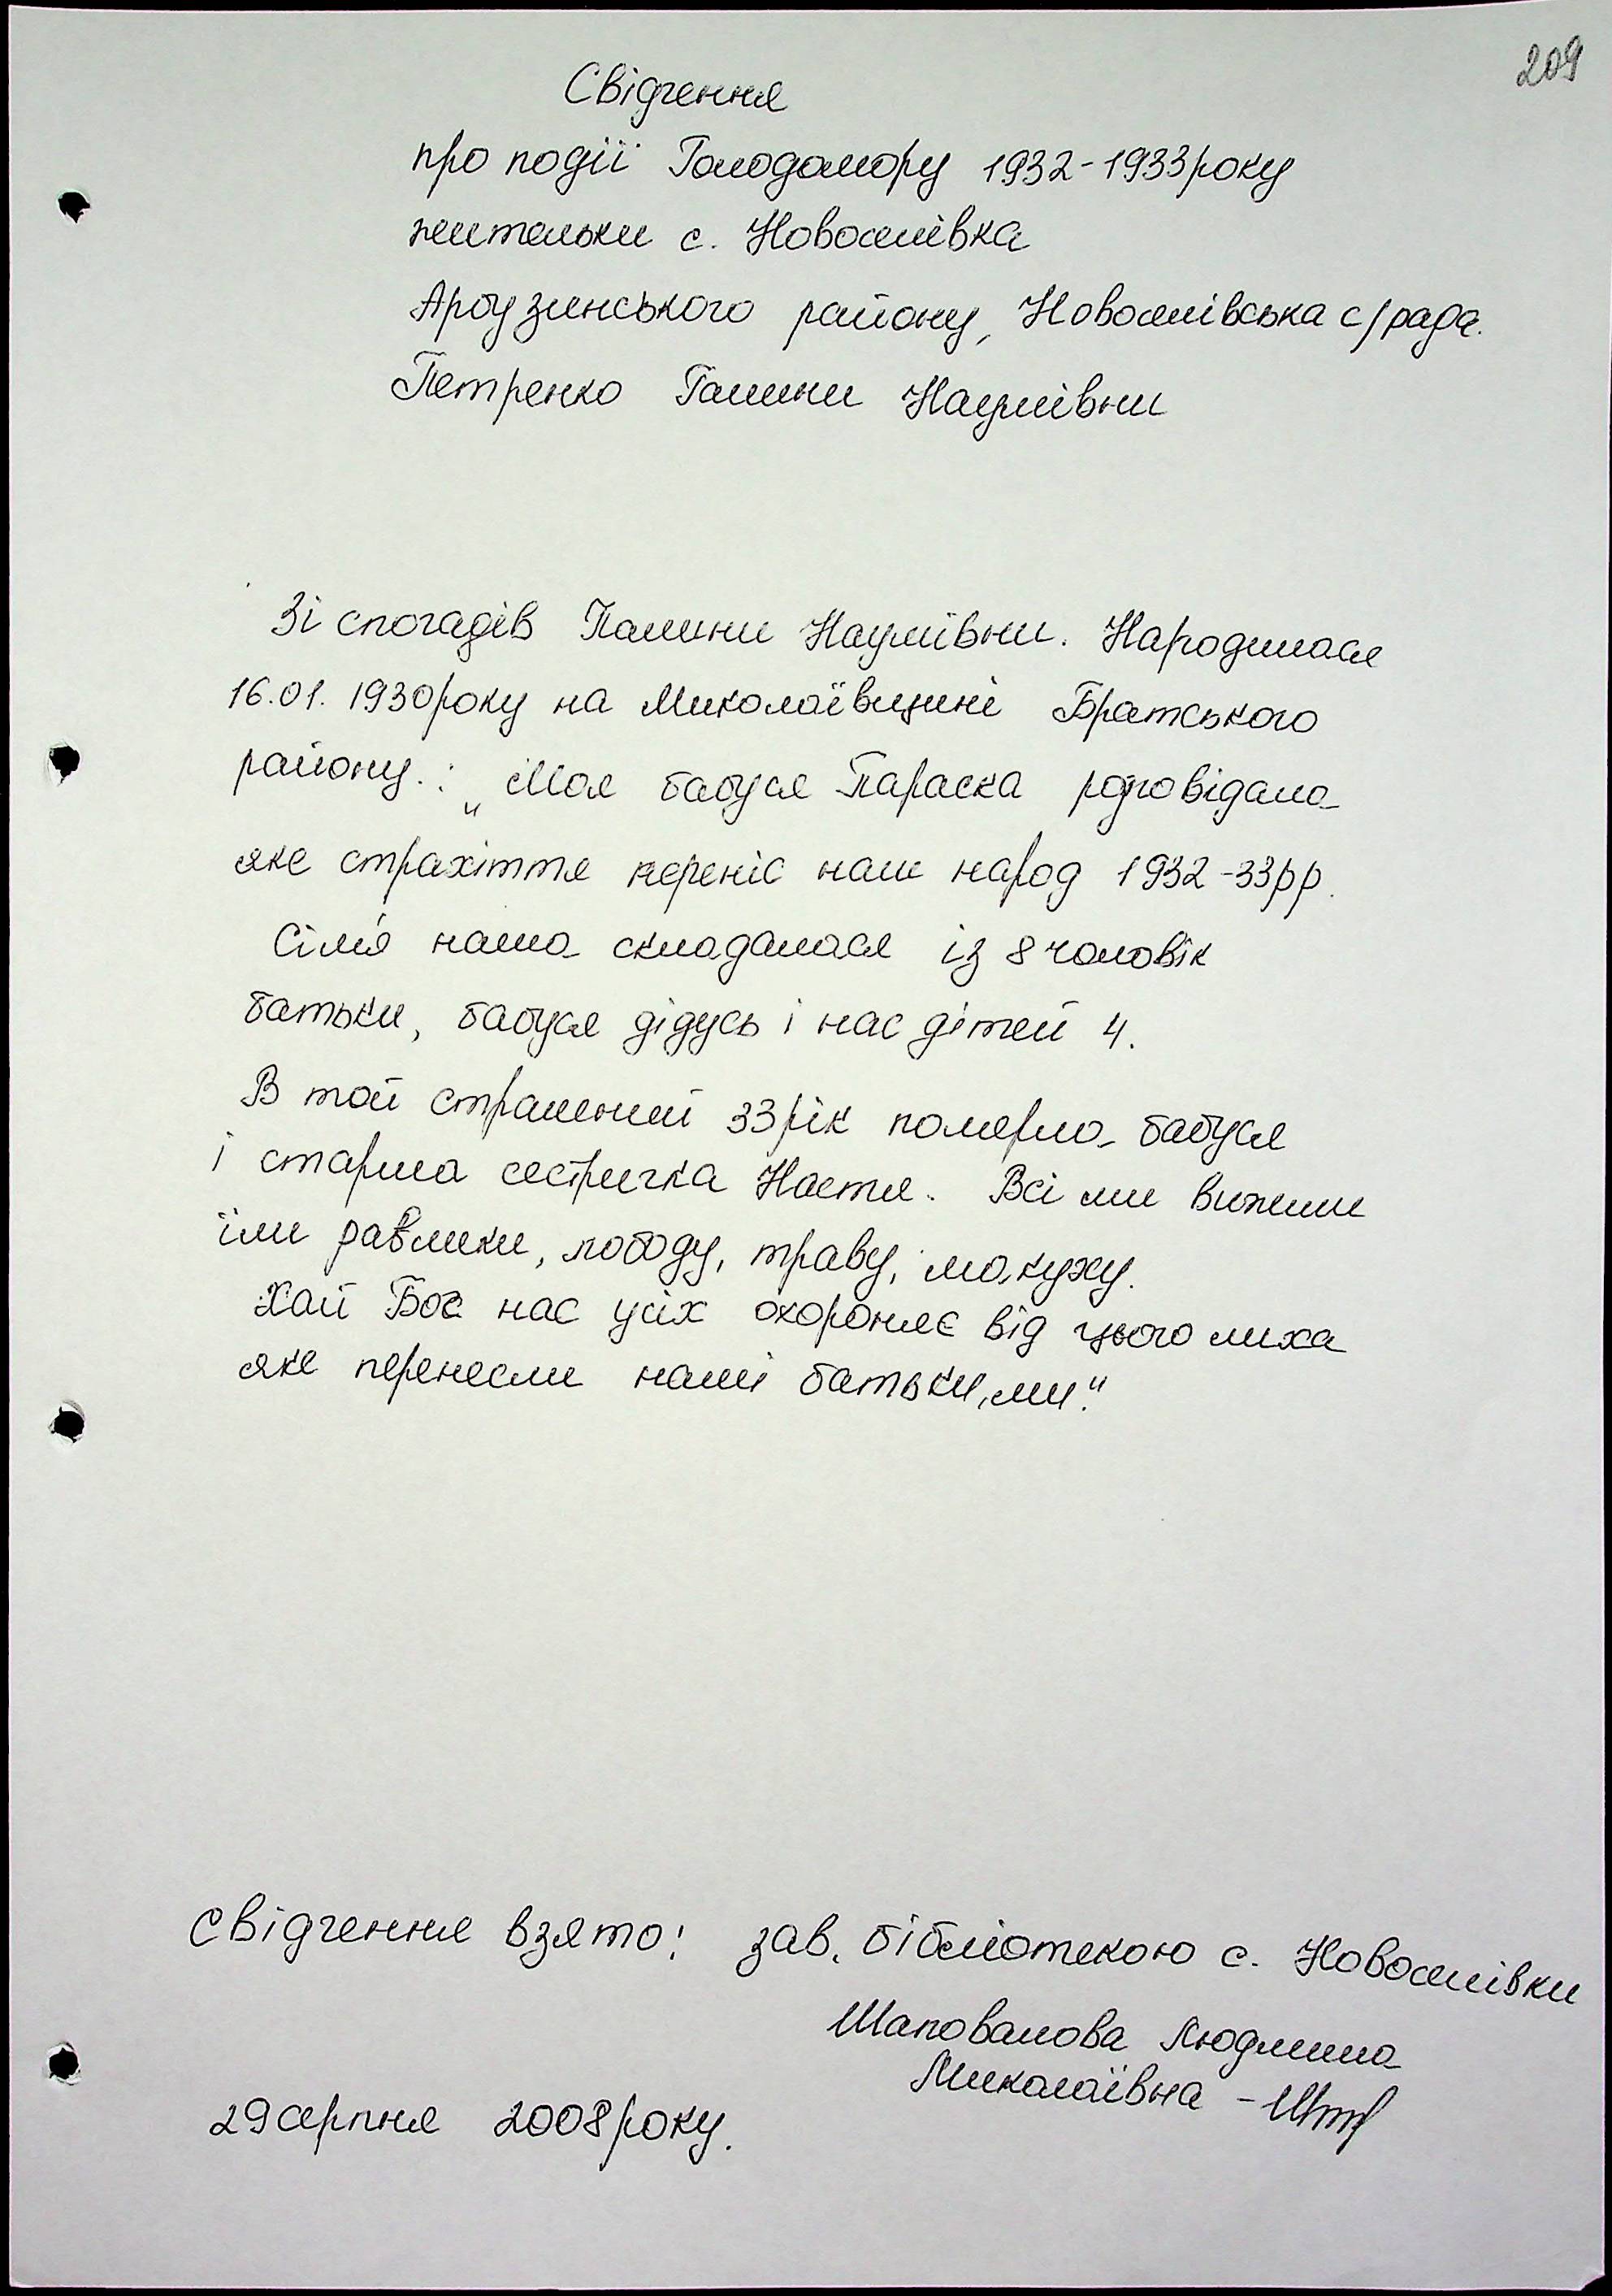 209
Свідчення
про події Голодомору 1932-1933року
жительки с. Новоселівка
Арбузинського району, Новоселівська с/рада.
Петренко Галини Наумівни
Зі спогадів Галини Наумівни. Народилася
16.01. 1930року на Миколаївщині Братського
району.: „Моя бабуся Параска розповідала
яке страхіття переніс наш народ 1932-33рр.
Сім'я наша складалася із 8 чоловік
батьки, бабуся дідусь і нас дітей 4.
В той страшний 33рік померла бабуся
і старша сестричка Настя. Всі ми вижили
їли равлики, лободу, траву, макуху.
Хай Бог нас усіх охороняє від цього лиха
яке перенесли наші батьки, ми."
Свідчення взято: зав. бібліотекою с. Новоселівки
Шаповалова Людмила
Миколаївна -
29серпня 2008року.